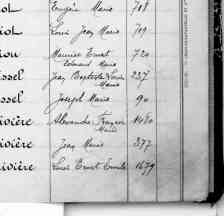 iot Eugène Marie 708
iot Louis Jean Marie 709
ou Maurice Ernest 720
Edouard Marie
issel Jean Baptiste Louis 237
Marie
issel Joseph Marie 90
ivière Alexandre François 1480
Marie
ivière Jean Marie 377
ivière Louis Ernest Emile 1679